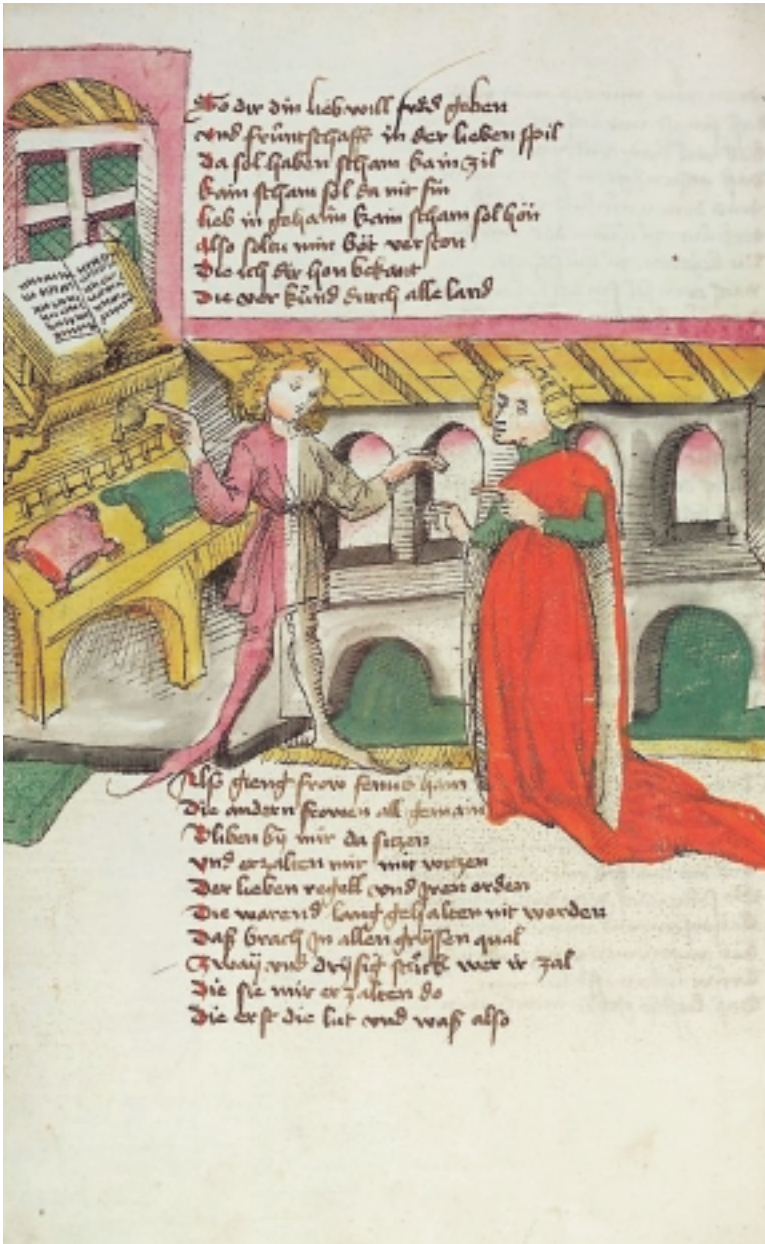 So dir din lieb will fröd geben
vnd früntschafft in der lieben spil
Da sol haben scham kain zil
kain scham sol da nit sin
lieb in gehaim kain scham sol hön
Also solen min böt verston
Die ich dir hon bekant
Die ver künd durch alle land
Also gieng frow fenus hain
Die andern frowen all gemain
Bliben by mir da sitzen
vnd erzalten mir mit witzen
Der lieben regell vnd jren orden
Die warend lang gehalten nit worden
Daß brach jn allen grÿssen qual
Zwaÿ vnd drÿsig stück wer ir zal
Die sie mir er zalten do
Die erst die lut vnd waß also